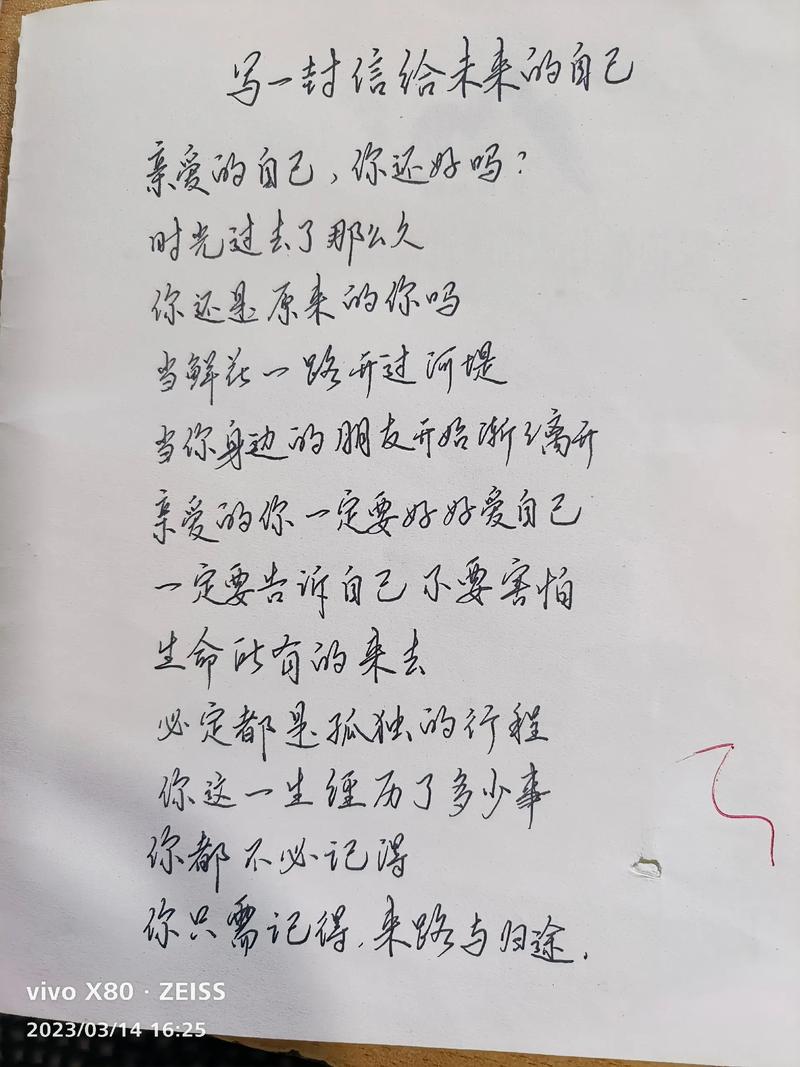 写一封信给未来的自己
亲爱的自己，你还好吗？
时光过去了那么久
你还是原来的你吗
当鲜花一路开过河堤
当你身边的朋友开始渐渐离开
亲爱的你一定要好好爱自己
一定要告诉自己不要害怕
生命所有的来去
必定都是孤独的行程
你这一生经历了多少事
你都不必记得
你只需记得，来路与归途．
vivo X80 · ZEISS
2023/03/14 16:25